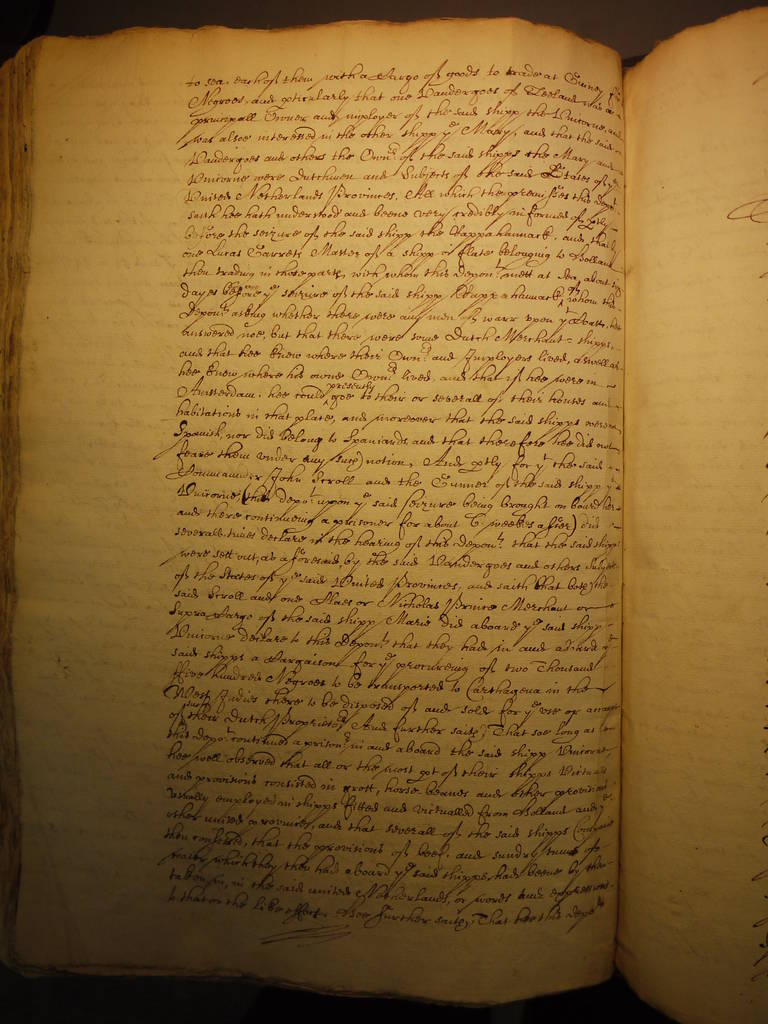 to sea, each of them with a Cargo of goods to trade at Guiney for
Negroes, and pticularly that one Vandergoes of Zeeland was a
principall Owner and imployer of the said shipp the Unicorne, and
was alsoe interessed in the other shipp ye Mary, and that the said
Vandergoes and others the Ownrs of the said shipps the Mary and
Unicorne were Dutchmen and Subjects of the said States of ye
United Netherlands Provinces. All which the premisses this depot
saith hee hath understood and beene very credibly informed of, ptly
before the seizure of the said shipp the Rappahannack, and that by
one Lucas Garrets Master of a shipp or flute belonging to Holland
then trading in those parts, with whom this depont mett at Sea, about
dayes before ye seizure of the said shipp Rappahannack, of whom this
Deponent asking whether there were any men of warr upon ye Coast, hee
answered noe, but that there were some Dutch Merchant-shipps,
and that hee knew where their Ownrs and Imployers lived, aswell as
hee knew where his owne Ownrs lived, and that if hee were in
Amsterdam, hee could presently goe to their or severall of their houses and
habitations in that place, and moreover that the said shipps were not
Spanish, nor did belong to Spaniards and that therefore hee did not
feare them under any such notion, And ptly for yt the said
Commander John Scroll and the Gunner of the said shipp ye
Unicorne (this depot upon ye said seizure being brought on board her
and there continueing a prisoner for about 6 weekes after) did
severall times declare in the hearing of this deponent that the said shipps
were sett out, as aforesaid, by the said Vandergoes and others Subjects
of the States of ye said United Provinces, and saith that both the
said Scroll and one Claes or Nicholas Prince Merchant or
Supra Cargo of the said shipp Marie did aboard ye said shipp
Unicorne declare to this Deponent that they had in and aboard ye
said shipps a Cargaison for ye procureing of two Thousand
ffive hundred Negroes to be transported to Carthagena in the
West Indies there to be disposed of and sold for ye use or
of their such Dutch Proprieters And further saith, That soe long as
this depot continued a prisonr in and aboard the said shipp Unicorne,
hee well observed that all or the most pt of their shipps Victualls
and provisions consisted in grott, horse beanes and other provisions
Usually employed in shipps fitted and victualled from Holland and ye
other united provinces, and that severall of the said shipps Company
then confessed, that the provisions of beef, and sundry tunns of
water which they then had aboard ye said shipps, had beene by them
taken in, in the said united Netherlands, or words and expressions
to that or the like effect. Also further saith, That hee this depot